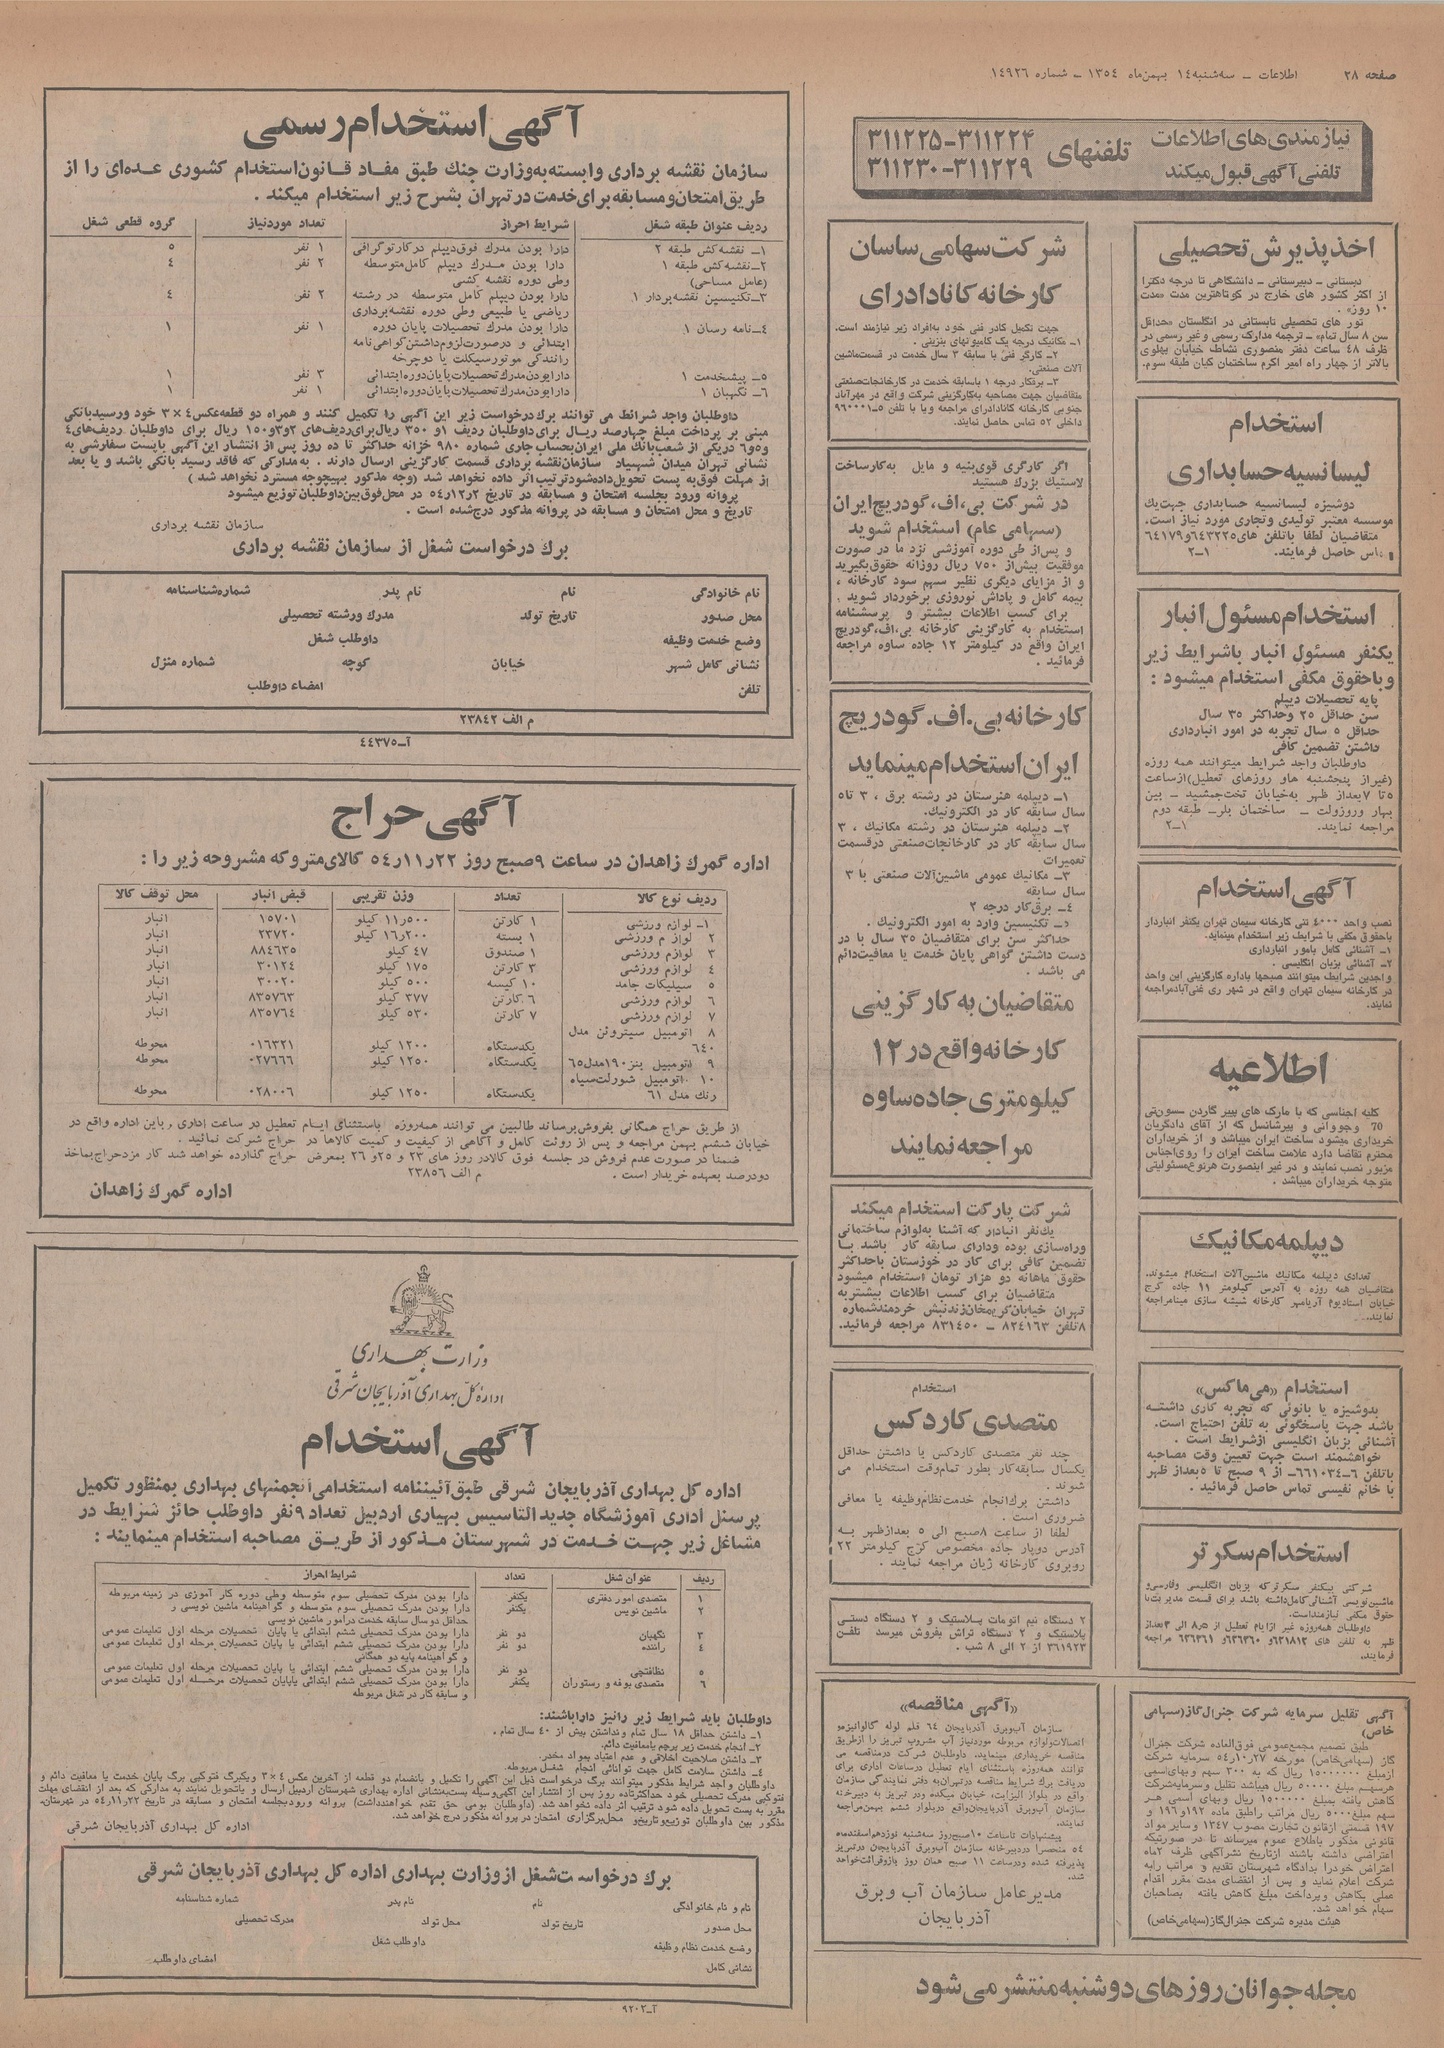 صفحه ۲۸
اطلاعات ــ سه‌شنبه ۱٤ بهمن ماه ۱۳٥٤ ــ شماره ۱٤۹۲٦
نیازمندی های اطلاعات
تلفنی آگهی قبول میکند
تلفنهای
۳۱۱۲۲٥-۳۱۱۲۲٤
۳۱۱۲۳۰-۳۱۱۲۲۹
اخذ پذیرش تحصیلی
دبستانی - دبیرستانی - دانشگاهی تا درجه دکترا
از اکثر کشور های خارج در کوتاهترین مدت «مدت
۱۰ روز» .
تور های تحصیلی تابستانی در انگلستان «حداقل
سن ۸ سال تمام» ـ ترجمه مدارک رسمی و غیر رسمی در
ظرف ٤۸ ساعت دفتر منصوری نشاط خیابان پهلوی
بالاتر از چهار راه امیر اکرم ساختمان کیان طبقه سوم.
استخدام
لیسانسیه حسابداری
دوشیزه لیسانسیه حسابداری جهت یک
موسسه معتبر تولیدی و تجاری مورد نیاز است.
متقاضیان لطفا با تلفن های ٦٤۳۲۲٥ و ٦٤۱۷۹
تماس حاصل فرمایند. ۱-۲
استخدام مسئول انبار
یکنفر مسئول انبار با شرایط زیر
و با حقوق مکفی استخدام میشود :
پایه تحصیلات دیپلم
سن حداقل ۲٥ و حداکثر ۳٥ سال
حداقل ٥ سال تجربه در امور انبارداری
داشتن تضمین کافی
داوطلبان واجد شرایط میتوانند همه روزه
(غیر از پنجشنبه ها و روزهای تعطیل) از ساعت
٥ تا ۷ بعداز ظهر به خیابان تخت جمشید ـ بین
بهار و روزولت ـ ساختمان بلر ـ طبقه دوم
مراجعه نمایند. ۱-۲
آگهی استخدام
نصب واحد ٤۰۰۰ تنی کارخانه سیمان تهران یکنفر انباردار
با حقوق مکفی با شرایط زیر استخدام مینماید.
۱ـ آشنائی کامل بامور انبارداری
۲ـ آشنائی بزبان انگلیسی .
واجدین شرایط میتوانند صبحها باداره کارگزینی این واحد
در کارخانه سیمان تهران واقع در شهر ری غنی آباد مراجعه
نمایند.
اطلاعیه
کلیه اجناسی که با مارک های پییر گاردن سسون تی
70 وجووانی و پیرشانسل که از آقای دادگریان
خریداری میشود ساخت ایران میباشد و از خریداران
محترم تقاضا دارد علامت ساخت ایران را روی اجناس
مزبور نصب نمایند و در غیر اینصورت هرنوع مسئولیتی
متوجه خریداران میباشد .
دیپلمه مکانیک
تعدادی دیپلمه مکانیک ماشین آلات استخدام میشوند.
متقاضیان همه روزه به آدرس کیلومتر ۱۱ جاده کرج
خیابان استادیوم آریامهر کارخانه شیشه سازی مینا مراجعه
نمایند.
استخدام «می ماکس»
بدوشیزه یا بانوئی که تجربه کاری داشته
باشد جهت پاسخگوئی به تلفن احتیاج است.
آشنائی بزبان انگلیسی از شرایط است .
خواهشمند است جهت تعیین وقت مصاحبه
با تلفن ٦-٦٦۱۰۳٤ از ۹ صبح تا ٥ بعداز ظهر
با خانم نفیسی تماس حاصل فرمائید .
استخدام سکرتر
شرکتی بیکنفر سکرتر که بزبان انگلیسی و فارسی و
ماشین نویسی آشنائی کامل داشته باشد برای قسمت مدیریت با
حقوق مکفی نیازمند است.
داوطلبان همه روزه غیر از ایام تعطیل از ۸ر٥ الی ۳ بعداز
ظهر به تلفن های ٦۲۱۸۱۲ و ٦۳٦۳٦۰ و ٦۳٦۳٦۱ مراجعه
فرمایند.
آگهی تقلیل سرمایه شرکت جنرال گاز (سهامی
خاص)
طبق تصمیم مجمع عمومی فوق العاده شرکت جنرال
گاز (سهامی خاص) مورخه ۲۷ر۱۰ر٥٤ سرمایه شرکت
از مبلغ ۱٥۰۰۰۰۰۰ ریال که به ۳۰۰ سهم و بهای اسمی
هر سهم مبلغ ٥۰۰۰۰ ریال میباشد تقلیل و سرمایه شرکت
کاهش یافته بمبلغ ۱٥۰۰۰۰۰ ریال و بهای اسمی هر
سهم مبلغ ٥۰۰۰ ریال مراتب راطبق ماده ۱۹۲ و ۱۹٦ و
۱۹۷ قسمتی از قانون تجارت مصوب ۱۳٤۷ و سایر مواد
قانونی مذکور باطلاع عموم میرساند تا در صورتیکه
اعتراضی داشته باشند از تاریخ نشر آگهی ظرف ۲ ماه
اعتراض خود را بدادگاه شهرستان تقدیم و مراتب را به
شرکت اعلام نماید و پس از انقضای مدت مقرر اقدام
عملی بکاهش و پرداخت مبلغ کاهش یافته بصاحبان
سهام خواهد شد.
هیئت مدیره شرکت جنرال گاز (سهامی خاص)
شرکت سهامی ساسان
کارخانه کانادادرای
جهت تکمیل کادر فنی خود به افراد زیر نیازمند است.
۱ـ مکانیک درجه یک کامیونهای بنزینی .
۲ـ کارگر فنی با سابقه ۳ سال خدمت در قسمت ماشین
آلات صنعتی.
۳ـ برقکار درجه ۱ باسابقه خدمت در کارخانجات صنعتی
متقاضیان جهت مصاحبه به کارگزینی شرکت واقع در مهرآباد
جنوبی کارخانه کانادادرای مراجعه و یا با تلفن ٥-۹٦۰۰۰۱
داخلی ٥۲ تماس حاصل نمایند.
اگر کارگری قوی بنیه و مایل به کار ساخت
لاستیک بزرک هستید
در شرکت بی.اف.گودریچ ایران
(سهامی عام) استخدام شوید
و پس از طی دوره آموزشی نزد ما در صورت
موفقیت بیش از ۷٥۰ ریال روزانه حقوق بگیرید
و از مزایای دیگری نظیر سهم سود کارخانه ،
بیمه کامل و پاداش نوروزی برخوردار شوید .
برای کسب اطلاعات بیشتر و پرسشنامه
استخدام به کارگزینی کارخانه بی.اف.گودریچ
ایران واقع در کیلومتر ۱۲ جاده ساوه مراجعه
فرمائید .
کارخانه بی.اف.گودریچ
ایران استخدام مینماید
۱ـ دیپلمه هنرستان در رشته برق ، ۳ تا ٥
سال سابقه کار در الکترونیک.
۲ـ دیپلمه هنرستان در رشته مکانیک ، ۳
سال سابقه کار در کارخانجات صنعتی در قسمت
تعمیرات
۳ـ مکانیک عمومی ماشین آلات صنعتی با ۳
سال سابقه
٤ـ برق کار درجه ۲
٥ـ تکنیسین وارد به امور الکترونیک .
حداکثر سن برای متقاضیان ۳٥ سال با در
دست داشتن گواهی پایان خدمت یا معافیت دائم
می باشد .
متقاضیان به کارگزینی
کارخانه واقع در ۱۲
کیلومتری جاده ساوه
مراجعه نمایند
شرکت پارکت استخدام میکند
یک نفر انباردار که آشنا به لوازم ساختمانی
و راه سازی بوده و دارای سابقه کار باشد با
تضمین کافی برای کار در خوزستان با حداکثر
حقوق ماهانه دو هزار تومان استخدام میشود
متقاضیان برای کسب اطلاعات بیشتر به
تهران خیابان کریمخان زند نبش خردمند شماره
۸ تلفن ۸۲٤۱٦۳ ـ ۸۳۱٤٥۰ مراجعه فرمائید.
استخدام
متصدی کاردکس
چند نفر متصدی کاردکس با داشتن حداقل
یکسال سابقه کار بطور تمام وقت استخدام می
شوند .
داشتن برک انجام خدمت نظام وظیفه یا معافی
ضروری است .
لطفا از ساعت ۸ صبح الی ٥ بعدازظهر به
آدرس دوپار جاده مخصوص کرج کیلومتر ۲۲
روبروی کارخانه ژیان مراجعه نمایند .
۲ دستگاه نیم اتومات پلاستیک و ۲ دستگاه دستی
پلاستیک و ۲ دستگاه تراش بفروش میرسد تلفن
۳٦۱۹۲۳ از ۲ الی ۸ شب .
«آگهی مناقصه»
سازمان آب و برق آذربایجان ٦٤ قلم لوله گالوانیزه و
اتصالات و لوازم مربوطه مورد نیاز آب مشروب تبریز را از طریق
مناقصه خریداری مینماید. داوطلبان شرکت در مناقصه می
توانند همه روزه باستثنای ایام تعطیل در ساعات اداری برای
دریافت برک شرایط مناقصه در تهران به دفتر نمایندگی سازمان
واقع در بلوار الیزابت، خیابان میکده و در تبریز به دبیرخانه
سازمان آب و برق آذربایجان واقع در بلوار ششم بهمن مراجعه
نمایند.
پیشنهادات تا ساعت ۱۰ صبح روز سه شنبه نوزدهم اسفندماه
٥٤ منحصرا در دبیرخانه سازمان آب و برق آذربایجان در تبریز
پذیرفته شده و در ساعت ۱۱ صبح همان روز باز و قرائت خواهد
شد.
مدیر عامل سازمان آب و برق
آذربایجان
مجله جوانان روزهای دوشنبه منتشر می شود
آگهی استخدام رسمی
سازمان نقشه برداری وابسته به وزارت جنک طبق مفاد قانون استخدام کشوری عده ای را از
طریق امتحان و مسابقه برای خدمت در تهران بشرح زیر استخدام میکند .
ردیف عنوان طبقه شغل شرایط احراز تعداد مورد نیاز گروه قطعی شغل
۱ـ نقشه کش طبقه ۲ دارا بودن مدرک فوق دیپلم در کارتوگرافی ۱ نفر ٥
۲ـ نقشه کش طبقه ۱ دارا بودن مدرک دیپلم کامل متوسطه ۲ نفر ٤
(عامل مساحی) وطی دوره نقشه کشی
۳ـ تکنیسین نقشه بردار ۱ دارا بودن دیپلم کامل متوسطه در رشته ۲ نفر ٤
ریاضی یا طبیعی وطی دوره نقشه برداری
٤ـ نامه رسان ۱ دارا بودن مدرک تحصیلات پایان دوره ۱ نفر ۱
ابتدائی و در صورت لزوم داشتن گواهی نامه
رانندگی موتورسیکلت یا دوچرخه
٥ـ پیشخدمت ۱ دارا بودن مدرک تحصیلات پایان دوره ابتدائی ۳ نفر ۱
٦ـ نگهبان ۱ دارا بودن مدرک تحصیلات پایان دوره ابتدائی ۱ نفر ۱
داوطلبان واجد شرائط می توانند برک درخواست زیر این آگهی را تکمیل کنند و همراه دو قطعه عکس ٤×۳ خود و رسید بانکی
مبنی بر پرداخت مبلغ چهارصد ریال برای داوطلبان ردیف ۱ و ۳٥۰ ریال برای ردیف های ۲ و ۳ و ۱٥۰ ریال برای داوطلبان ردیف های ٤
و ٥ و ٦ در یکی از شعب بانک ملی ایران بحساب جاری شماره ۹۸۰ خزانه حداکثر تا ده روز پس از انتشار این آگهی با پست سفارشی به
نشانی تهران میدان شهیاد سازمان نقشه برداری قسمت کارگزینی ارسال دارند . به مدارکی که فاقد رسید بانکی باشد و یا بعد
از مهلت فوق به پست تحویل داده شود ترتیب اثر داده نخواهد شد (وجه مذکور بهیچوجه مسترد نخواهد شد)
پروانه ورود بجلسه امتحان و مسابقه در تاریخ ۲ر۱۲ر٥٤ در محل فوق بین داوطلبان توزیع میشود
تاریخ و محل امتحان و مسابقه در پروانه مذکور درج شده است .
سازمان نقشه برداری
برک درخواست شغل از سازمان نقشه برداری
نام خانوادگی نام نام پدر شماره شناسنامه
محل صدور تاریخ تولد مدرک و رشته تحصیلی
وضع خدمت وظیفه داوطلب شغل
نشانی کامل شهر خیابان کوچه شماره منزل
تلفن امضاء داوطلب
م الف ۲۳۸٤۲
آـ٤٤۳۷٥
آگهی حراج
اداره گمرک زاهدان در ساعت ۹ صبح روز ۲۲ر۱۱ر٥٤ کالای متروکه مشروحه زیر را :
ردیف نوع کالا تعداد وزن تقریبی قبض انبار محل توقف کالا
۱ـ لوازم ورزشی ۱ کارتن ٥۰۰ر۱۱ کیلو ۱٥۷۰۱ انبار
۲ لوازم ورزشی ۱ بسته ۲۰۰ر۱٦ کیلو ۲۳۷۲۰ انبار
۳ لوازم ورزشی ۱ صندوق ٤۷ کیلو ۸۸٤٦۳٥ انبار
٤ لوازم ورزشی ۳ کارتن ۱۷٥ کیلو ۳۰۱۲٤ انبار
٥ سیلیکات جامد ۱۰ کیسه ٥۰۰ کیلو ۳۰۰۲۰ انبار
٦ لوازم ورزشی ٦ کارتن ۳۷۷ کیلو ۸۳٥۷٦۳ انبار
۷ لوازم ورزشی ۷ کارتن ٥۳۰ کیلو ۸۳٥۷٦٤ انبار
۸ اتومبیل سیتروئن مدل
٦٤۰ یکدستگاه ۱۲۰۰ کیلو ۰۱٦۳۲۱ محوطه
۹ اتومبیل بنز ۱۹۰ مدل ٦٥ یکدستگاه ۱۲٥۰ کیلو ۰۲۷٦٦٦ محوطه
۱۰ اتومبیل شورلت سیاه
رنک مدل ٦۱ یکدستگاه ۱۲٥۰ کیلو ۰۲۸۰۰٦ محوطه
از طریق حراج همگانی بفروش برساند طالبین می توانند همه روزه باستثنای ایام تعطیل در ساعت اداری ، باین اداره واقع در
خیابان ششم بهمن مراجعه و پس از روئت کامل و آگاهی از کیفیت و کمیت کالاها در حراج شرکت نمائید .
ضمنا در صورت عدم فروش در جلسه فوق کالا در روز های ۲۳ و ۲٥ و ۲٦ بمعرض حراج گذارده خواهد شد کار مزد حراج بماخذ
دو درصد بعهده خریدار است .
م الف ۲۳۸٥٦
اداره گمرک زاهدان
وزارت بهداری
اداره کل بهداری آذربایجان شرقی
آگهی استخدام
اداره کل بهداری آذربایجان شرقی طبق آئیننامه استخدامی انجمنهای بهداری بمنظور تکمیل
پرسنل اداری آموزشگاه جدید التاسیس بهیاری اردبیل تعداد ۹ نفر داوطلب حائز شرایط در
مشاغل زیر جهت خدمت در شهرستان مذکور از طریق مصاحبه استخدام مینمایند :
ردیف عنوان شغل تعداد شرایط احراز
۱ متصدی امور دفتری یکنفر دارا بودن مدرک تحصیلی سوم متوسطه وطی دوره کار آموزی در زمینه مربوطه
۲ ماشین نویس یکنفر دارا بودن مدرک تحصیلی سوم متوسطه و گواهینامه ماشین نویسی و
حداقل دو سال سابقه خدمت در امور ماشین نویسی
۳ نگهبان دو نفر دارا بودن مدرک تحصیلی ششم ابتدائی یا پایان تحصیلات مرحله اول تعلیمات عمومی
٤ راننده دو نفر دارا بودن مدرک تحصیلی ششم ابتدائی یا پایان تحصیلات مرحله اول تعلیمات عمومی
و گواهینامه پایه دو همگانی
٥ نظافتچی دو نفر دارا بودن مدرک تحصیلی ششم ابتدائی یا پایان تحصیلات مرحله اول تعلیمات عمومی
٦ متصدی بوفه و رستوران یکنفر دارا بودن مدرک تحصیلی ششم ابتدائی یا پایان تحصیلات مرحله اول تعلیمات عمومی
و سابقه کار در شغل مربوطه
داوطلبان باید شرایط زیر رانیز دارا باشند:
۱ـ داشتن حداقل ۱۸ سال تمام و نداشتن بیش از ٤۰ سال تمام .
۲ـ انجام خدمت زیر پرچم یا معافیت دائم.
۳ـ داشتن صلاحیت اخلاقی و عدم اعتیاد بمواد مخدر.
٤ـ داشتن سلامت کامل جهت توانائی انجام شغل مربوطه.
داوطلبان واجد شرایط مذکور میتوانند برک درخواست ذیل این آگهی را تکمیل و بانضمام دو قطعه از آخرین عکس ٤×۳ و یکبرگ فتوکپی برگ پایان خدمت یا معافیت دائم و
فتوکپی مدرک تحصیلی خود حداکثر تا ده روز پس از انتشار این آگهی وسیله پست به نشانی اداره بهداری شهرستان اردبیل ارسال و یا تحویل نمایند به مدارکی که بعد از انقضای مهلت
مقرر به پست تحویل داده شود ترتیب اثر داده نخواهد شد. (داوطلبان بومی حق تقدم خواهند داشت) پروانه ورود بجلسه امتحان و مسابقه در تاریخ ۲۲ر۱۱ر٥٤ در شهرستان
مذکور بین داوطلبان توزیع و تاریخ و محل برگزاری امتحان در پروانه مذکور درج خواهد شد.
اداره کل بهداری آذربایجان شرقی
برک درخواست شغل از وزارت بهداری اداره کل بهداری آذربایجان شرقی
نام و نام خانوادگی نام نام پدر شماره شناسنامه
محل صدور تاریخ تولد محل تولد مدرک تحصیلی
وضع خدمت نظام وظیفه داوطلب شغل
نشانی کامل امضای داوطلب
آـ۹۲۰۲